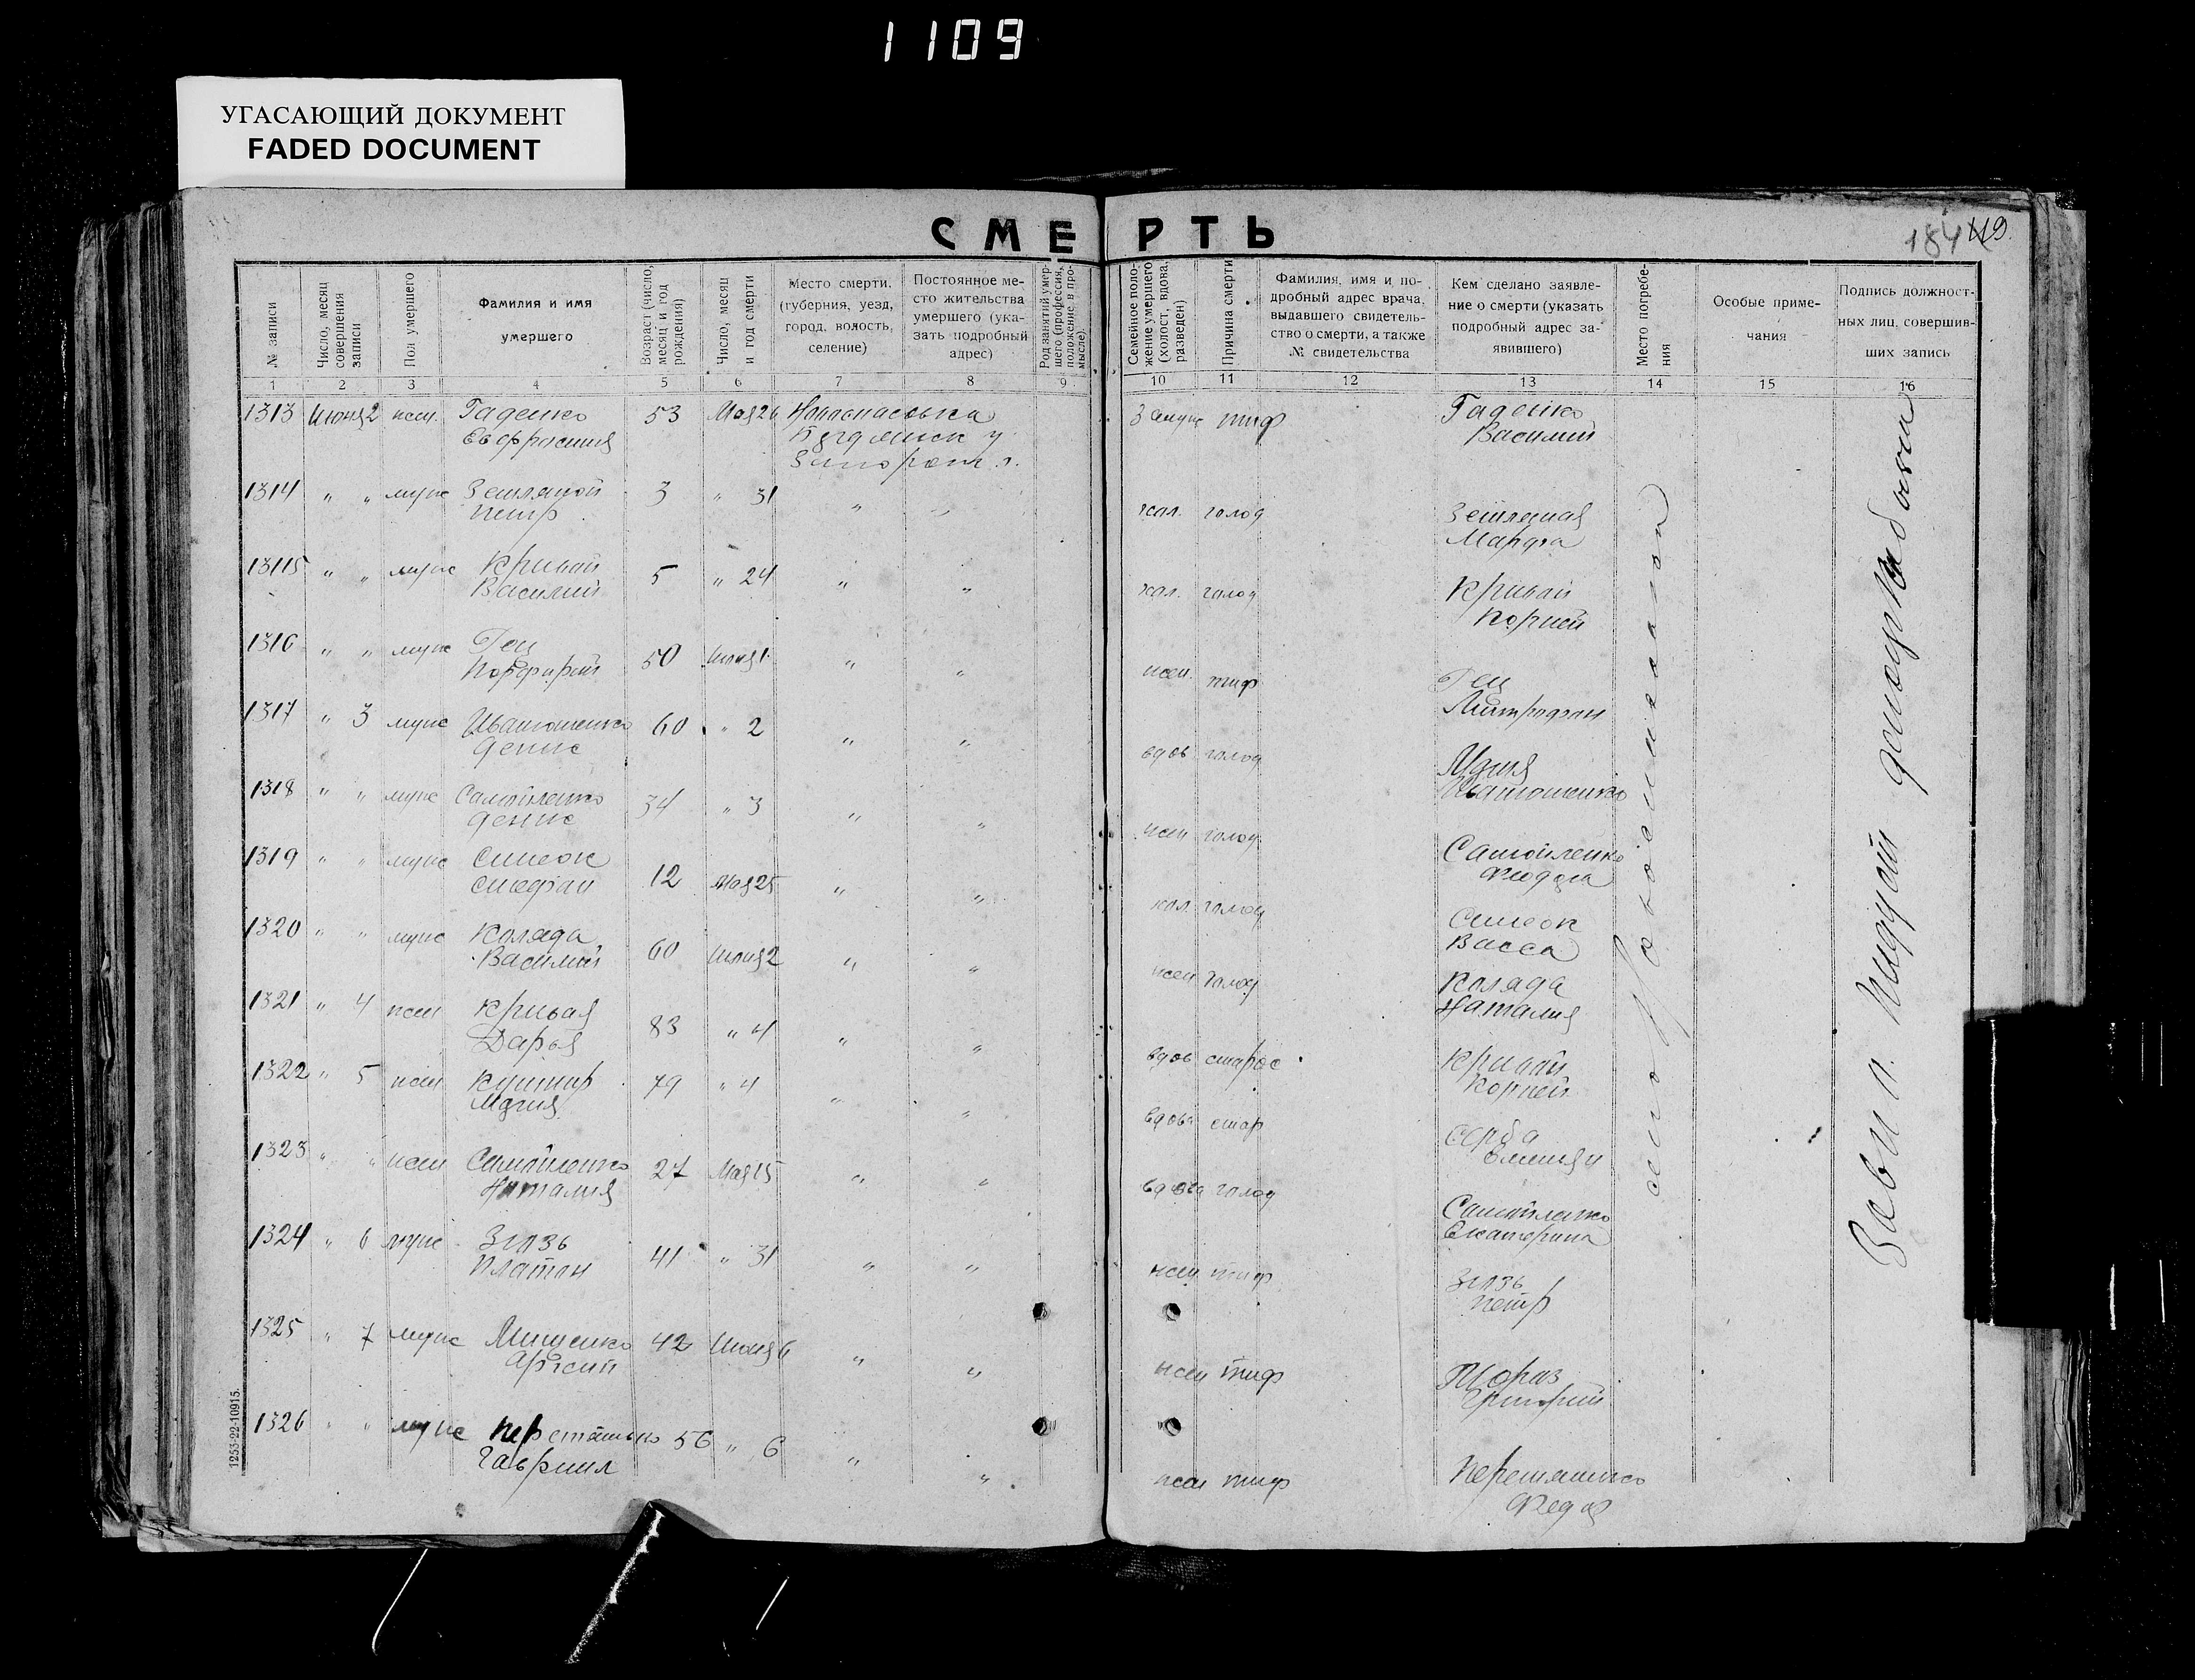 1109
УГАСАЮЩИЙ ДОКУМЕНТ
FADED DOCUMENT
СМЕРТЬ
184 119.
№ записи
Число, месяц совершения записи
Пол умершего
Фамилия и имя умершего
Возраст (число, месяц и год рождения)
Число, месяц и год смерти
Место смерти. (губерния, уезд, город, волость, селение)
Постоянное место жительства умершего (указать подробный адрес)
Род занятий умершего (профессия, положение в промысле).
Семейное положение умершего (холост, вдова, разведен)
Причина смерти
Фамилия, имя и подробный адрес врача, выдавшего свидетельство о смерти, а также № свидетельства
Кем сделано заявление о смерти (указать подробный адрес заявившего)
Место погребения
Особые примечания
Подпись должностных лиц, совершивших запись
1 2 3 4 5 6 7 8 9 10 11 12 13 14 15 16
1313 Июня 2 жен. Гаденко 53 Мая 26 Новоспасовка Замуж тиф Гаденко
Евфросиния Василий
1314 " " муж Земляной 3 " 31 " " хол. голод Земляная
Петр Марфа
13115 " " муж Кривай 5 " 24 " " хол. голод Кривай
Василий Корней
1316 " " муж Гец 50 Июня 1 " " жен. тиф Гец
Порфирий Митрофан
1317 " 3 муж Ивашошенко 60 " 2 " " вдов голод
Денис
1318 " " муж Самойленко 34 " 3 " " жен голод Самойленко
Денис
1319 " " муж Симеок 12 Мая 25 " " хол. голод Симеок
Стефан Васса
1320 " " муж Коляда 60 Июня 2 " " жен голод Коляда
Василий Наталия
1321 " 4 жен Кривая 83 " 4 " " вдов старос Кривай
Дарья Корней
1322 " 5 жен Кушнир 79 " 4 " " вдова стар Серба
1323 " " жен Самойленко 27 Мая 15 " " вдова голод Самойленко
Наталия Екатерина
1324 " 6 муж 41 " 31 " " жен тиф
Платон Петр
1325 " 7 муж Мищенко 42 Июня 6 " " жен тиф Мораз
Арсений Григорий
1326 " " муж 56 " 6 " " жен тиф
Гавриил Федор
село Новоспасовка
Завп.
1253-22-10915.